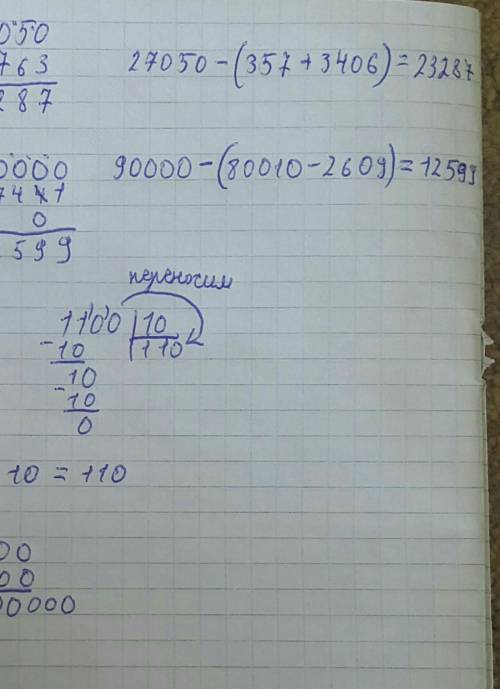 050
763
287
27050-(357+3406)=23287
0000
7441
0
599
90000-(80010-2609)=12599
переносим
1100 10
-10 110
10
-10
0
10=110
00
00
00000